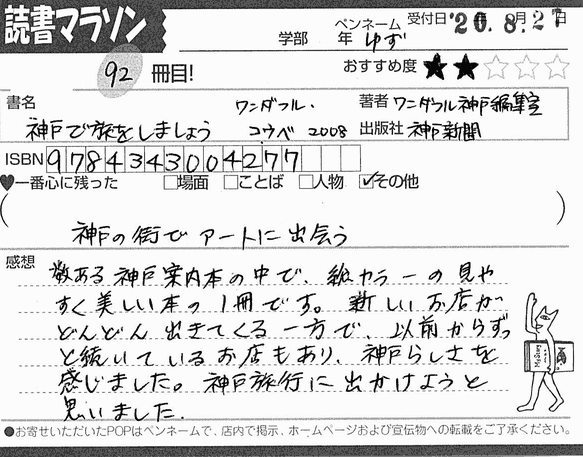 読書マラソン
学部 年
ペンネーム ゆず
受付日 '20. 8. 27日
92 冊目!
おすすめ度 ★★☆☆☆
書名 ワンダフル・
神戸で旅をしましょう コウベ 2008
著者 ワンダフル神戸編集室
出版社 神戸新聞
ISBN 9784343004277
♥一番心に残った □場面 □ことば □人物 ☑その他
(神戸の街でアートに出会う)
感想 数ある神戸案内本の中で、総カラーの見や
すく美しい本の1冊です。新しいお店が
どんどん出きてくる一方で、以前からずっ
と続いているお店もあり、神戸らしさを
感じました。神戸旅行に出かけようと
思いました.
●お寄せいただいたPOPはペンネームで、店内で掲示、ホームページおよび宣伝物への転載をご了承ください。